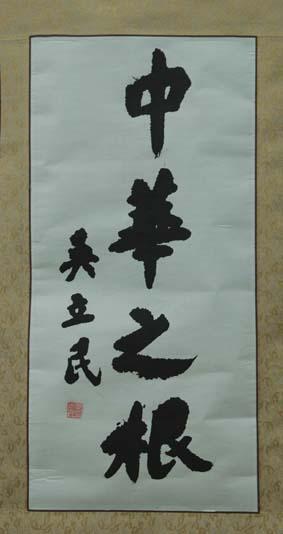 中華之根
吴立民